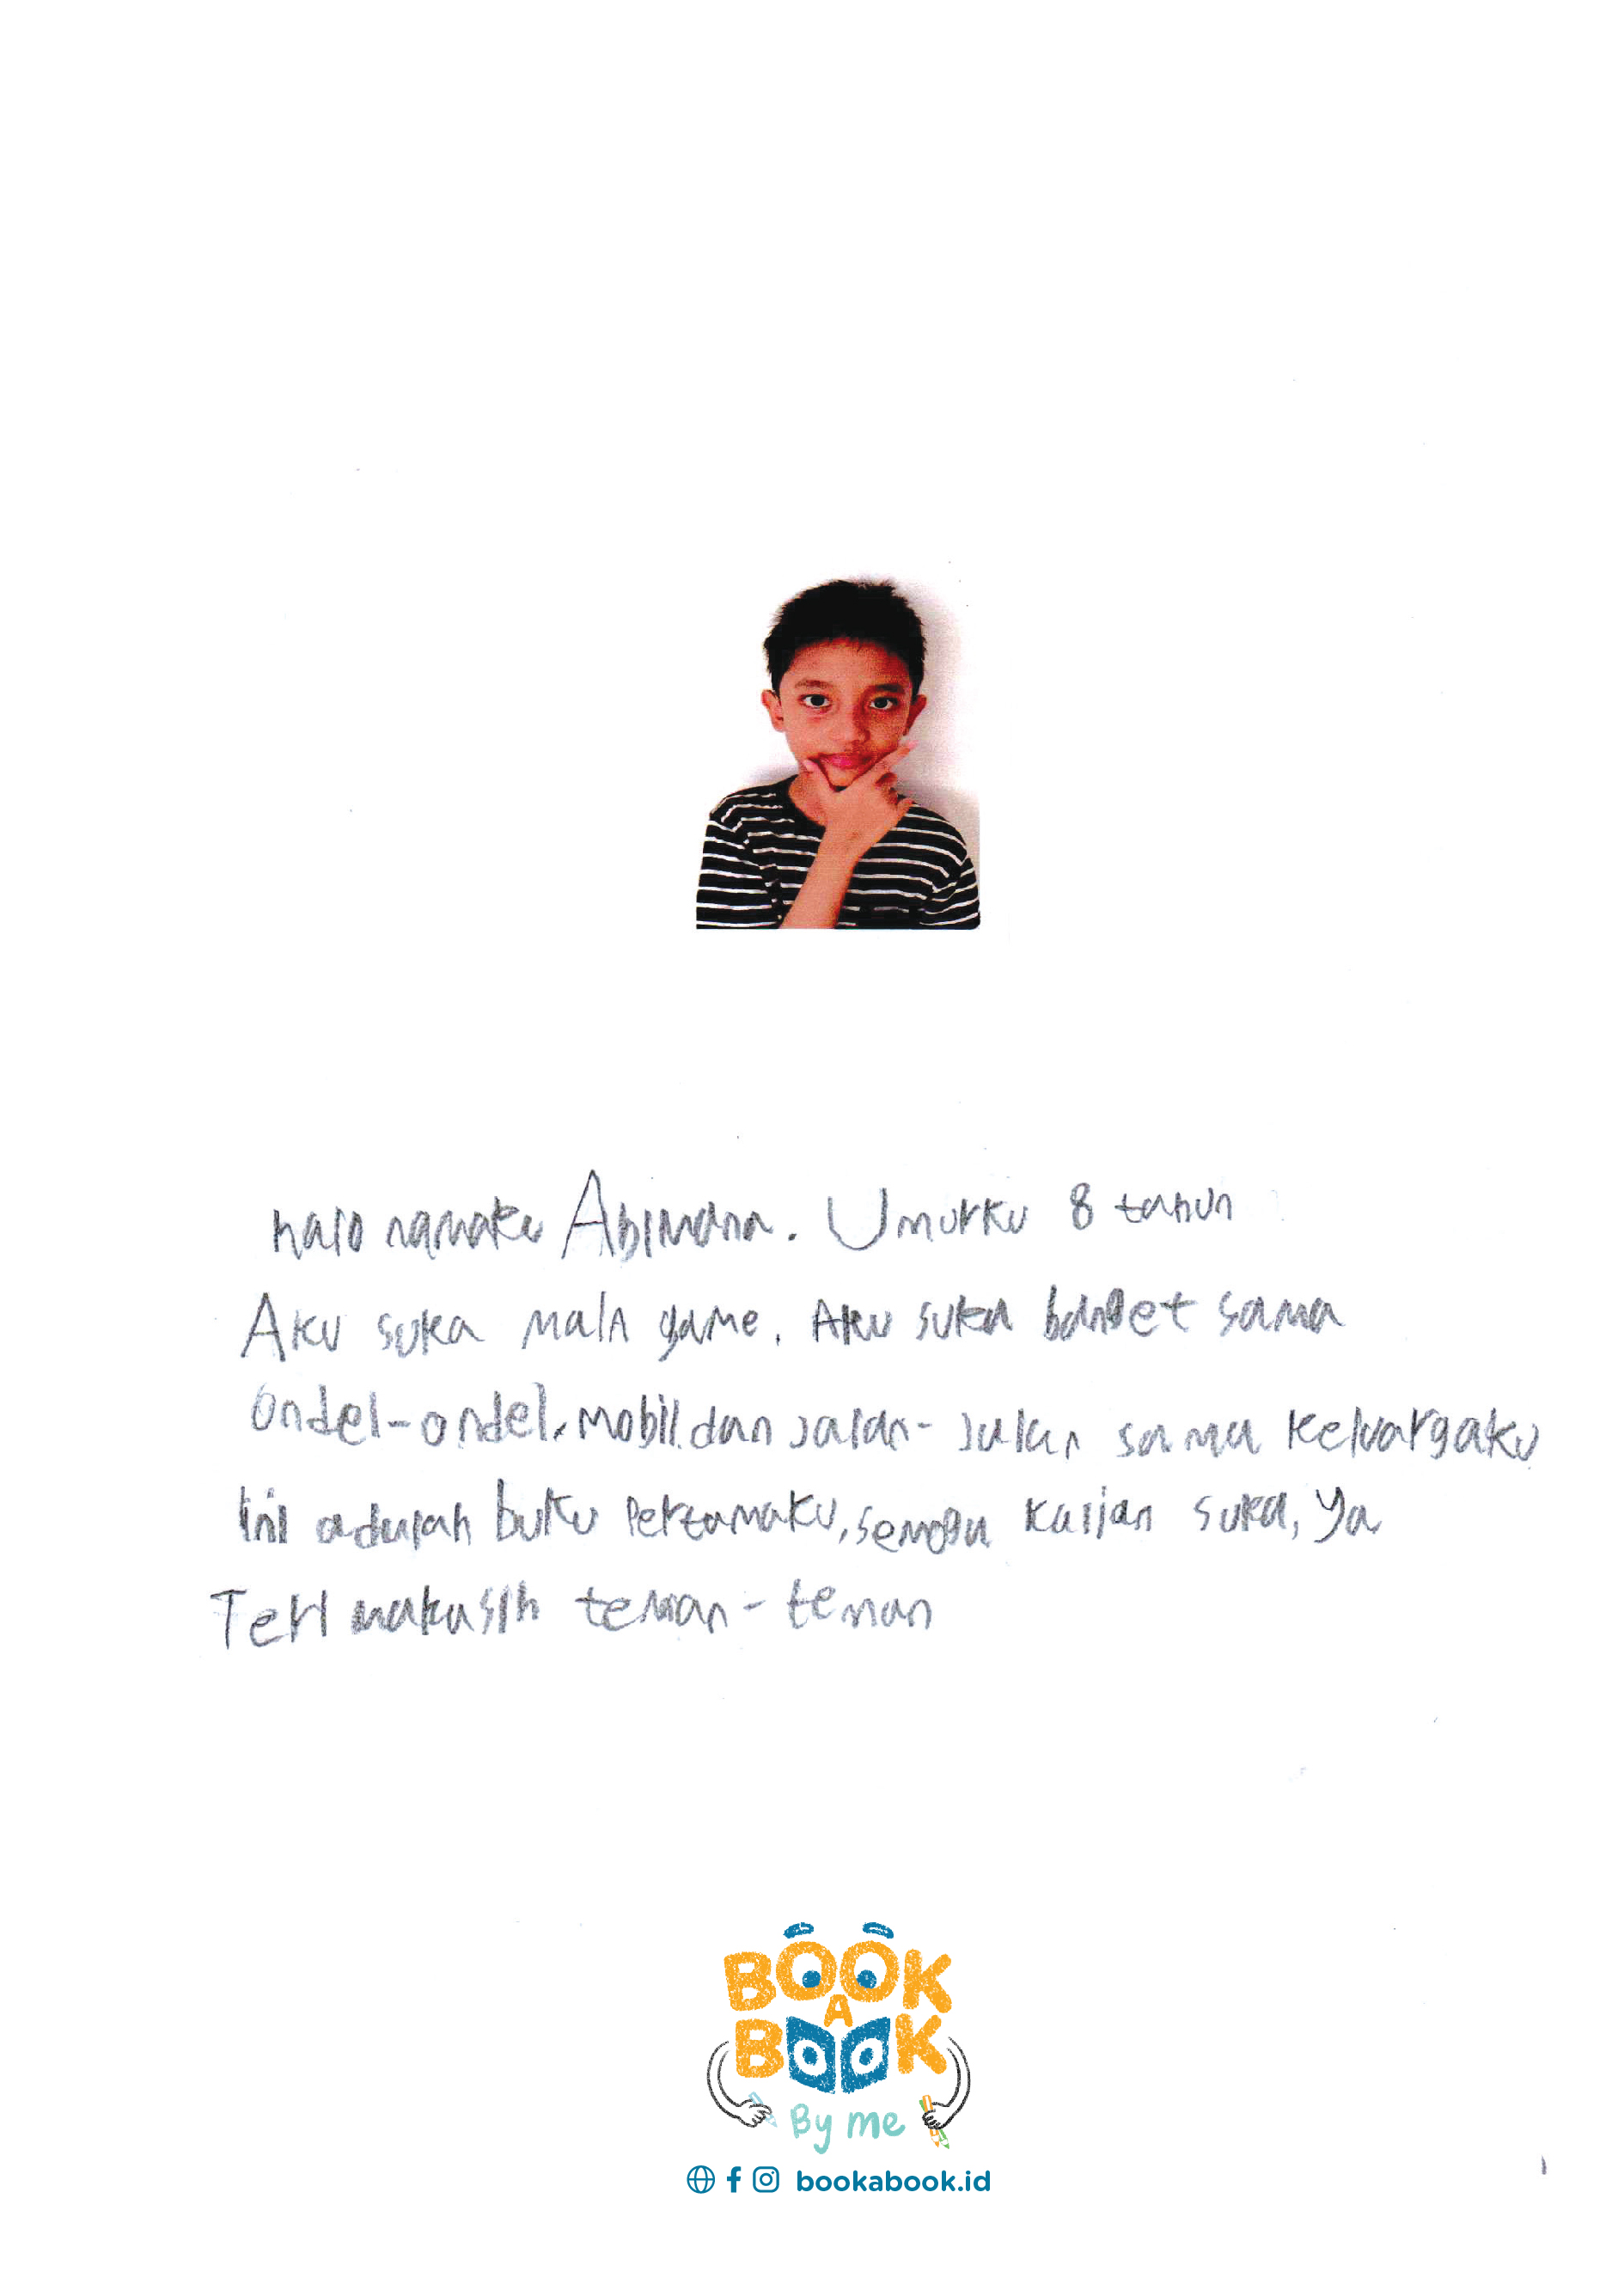 halo namaku Abimana. Umurku 8 tahun
Aku suka main game. Aku suka banget sama
Ondel-ondel, mobil dan jalan-jalan sama keluargaku
Ini adalah buku Pertamaku, semoga kalian suka, Ya
Terimakasih teman-teman
BOOK
A
BOOK
By me
bookabook.id
1